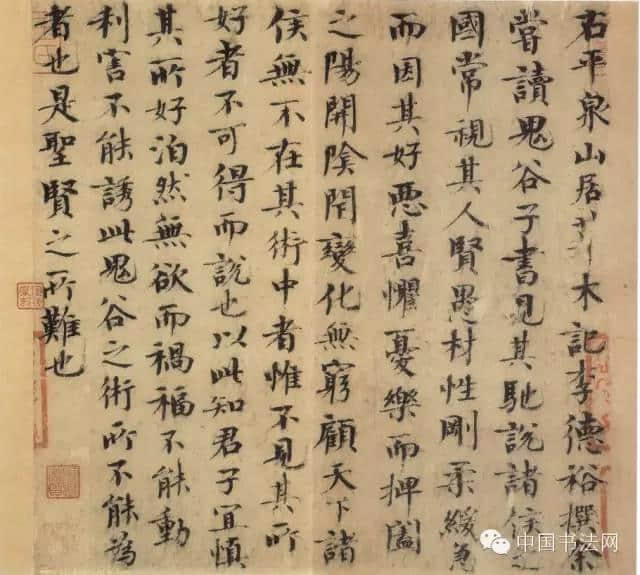 右平泉山居草木記李德裕撰余
嘗讀鬼谷子書見其馳說諸侯之
國常視其人賢愚材性剛柔緩急
而因其好惡喜懼憂樂而捭闔
之陽開陰閇變化無窮顧天下諸
侯無不在其術中者惟不見其所
好者不可得而說也以此知君子宜慎
其所好泊然無欲而禍福不能動
利害不能誘此鬼谷之術所不能為
者也是聖賢之所難也
中国书法网